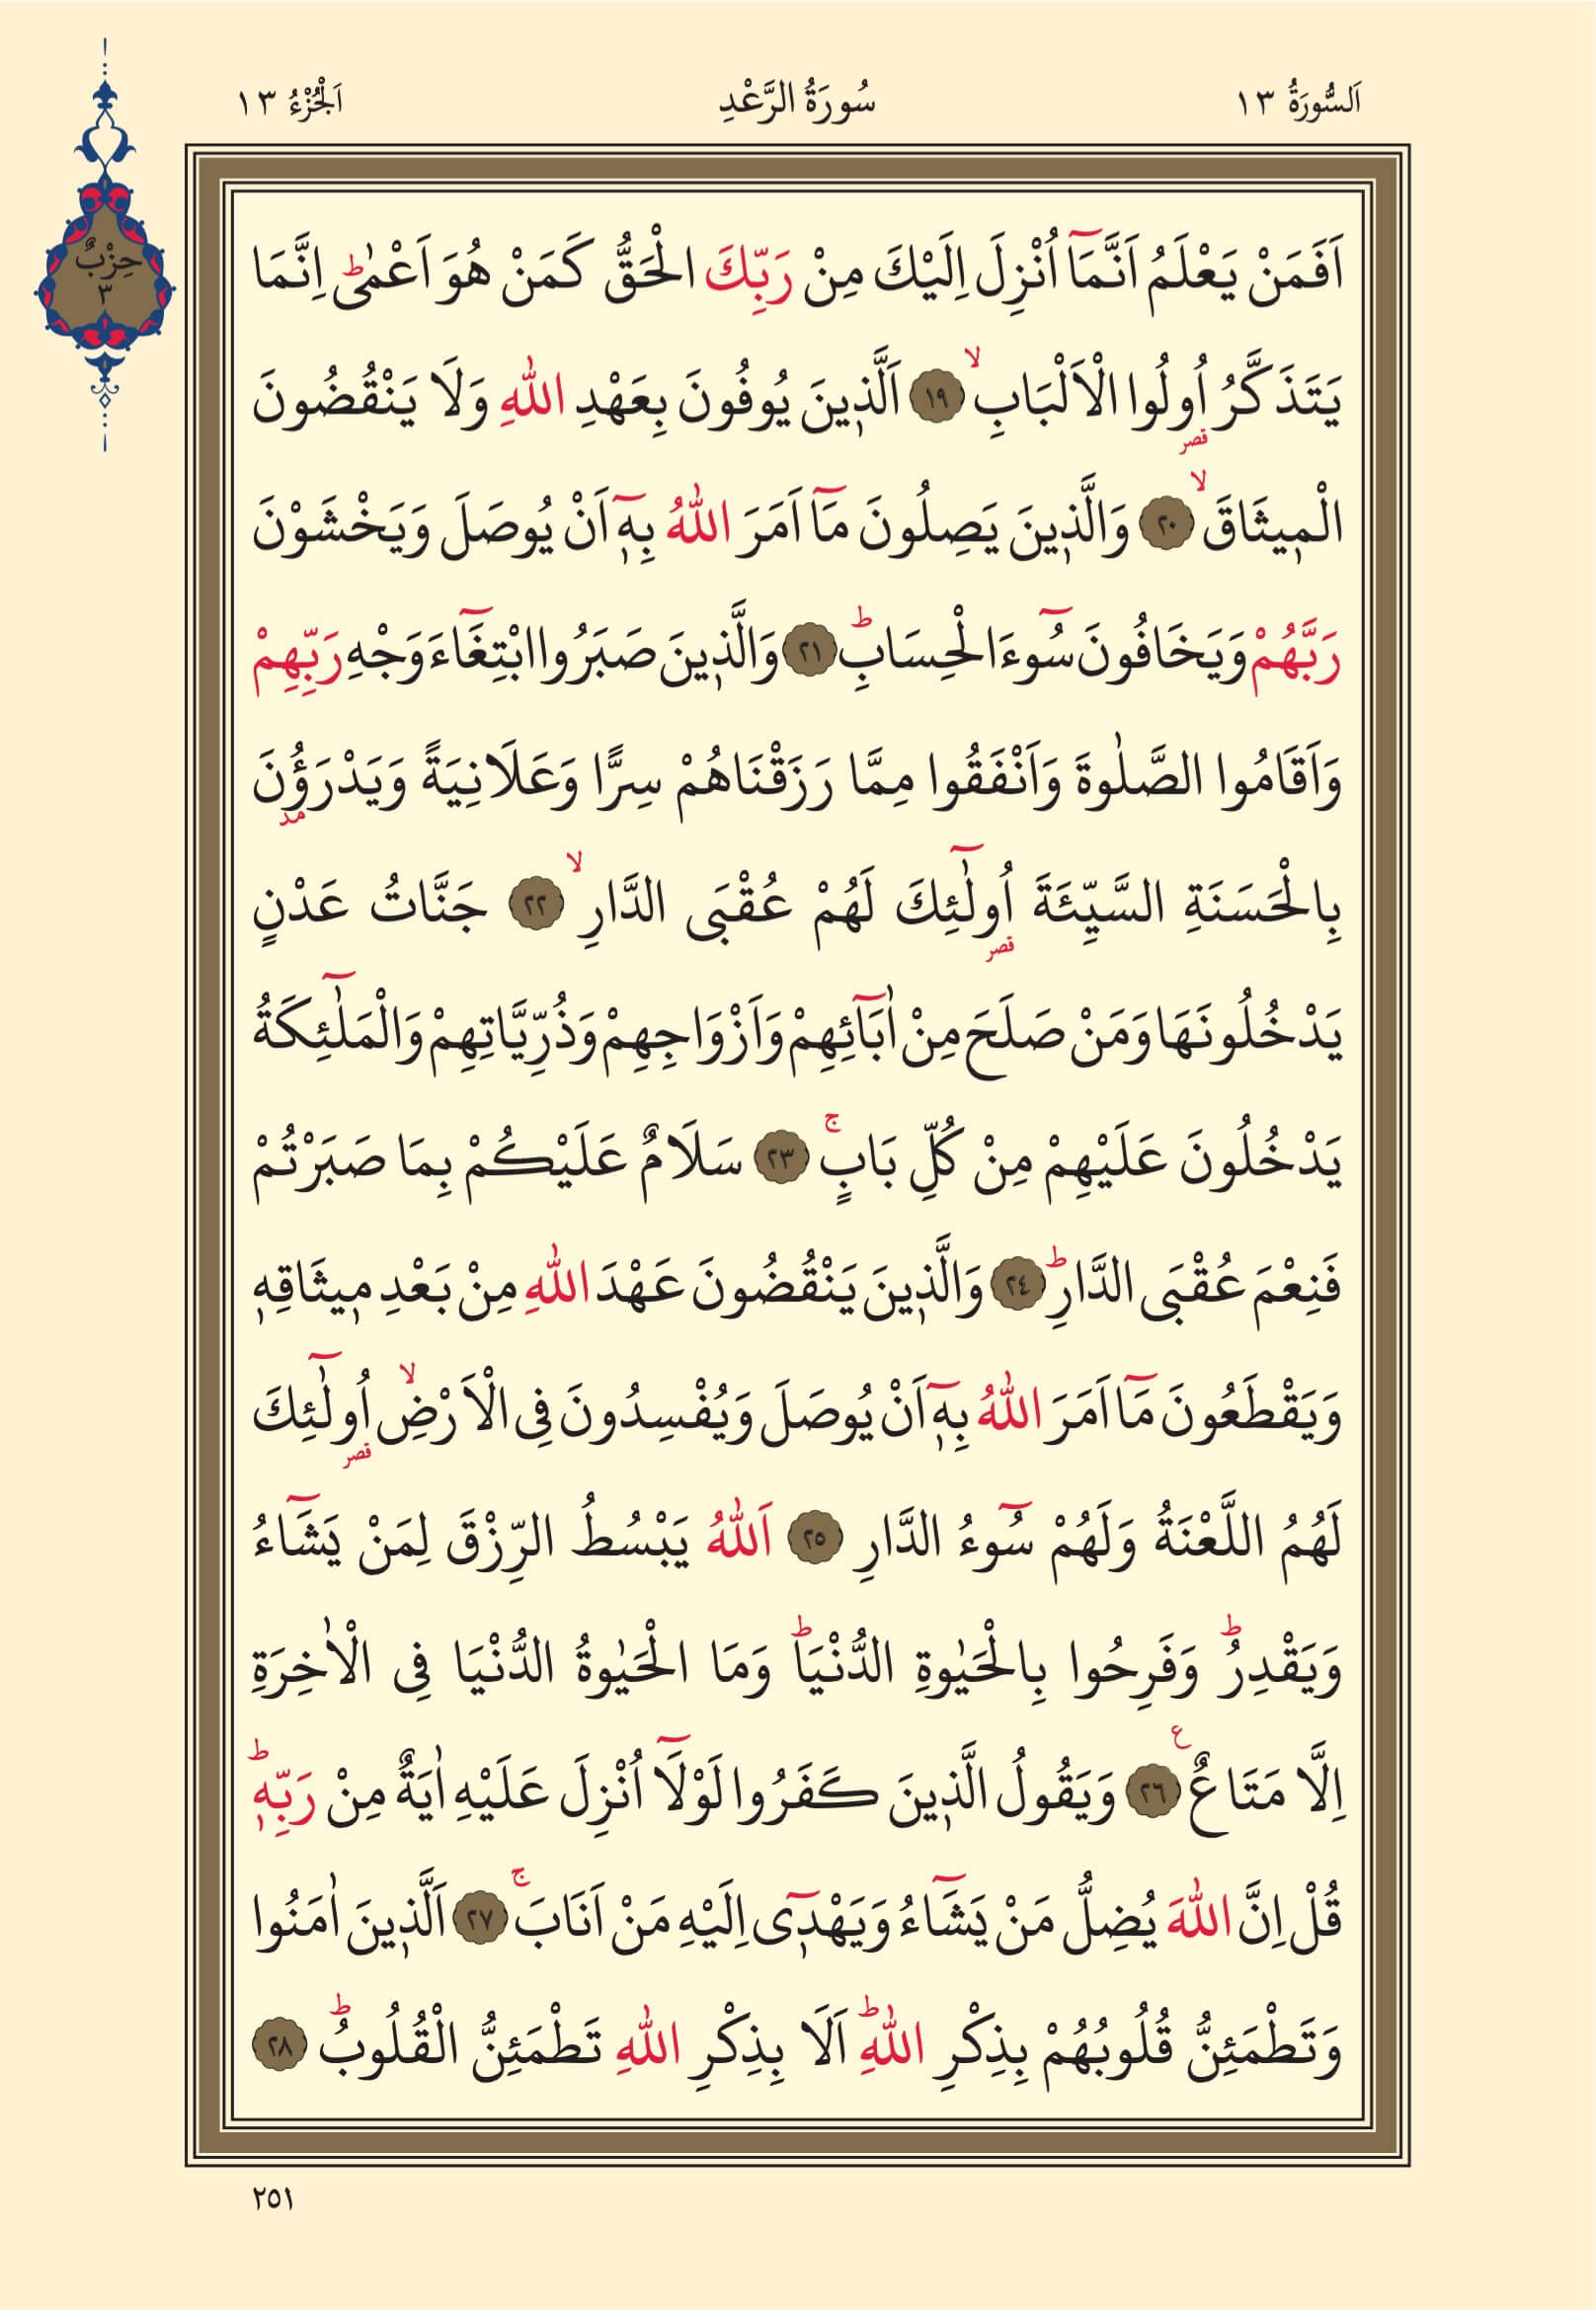 اَلسُّورَةُ ١٣
سُورَةُ الرَّعْدِ
اَلْجُزْءُ ١٣
حِزْبٌ
٣
اَفَمَنْ يَعْلَمُ اَنَّمَٓا اُنْزِلَ اِلَيْكَ مِنْ رَبِّكَ الْحَقُّ كَمَنْ هُوَ اَعْمٰىۜ اِنَّمَا
يَتَذَكَّرُ اُو۬لُوا الْاَلْبَابِۙ ﴿١٩﴾ اَلَّذ۪ينَ يُوفُونَ بِعَهْدِ اللّٰهِ وَلَا يَنْقُضُونَ
الْم۪يثَاقَۙ ﴿٢٠﴾ وَالَّذ۪ينَ يَصِلُونَ مَٓا اَمَرَ اللّٰهُ بِه۪ٓ اَنْ يُوصَلَ وَيَخْشَوْنَ
رَبَّهُمْ وَيَخَافُونَ سُٓوءَ الْحِسَابِۜ ﴿٢١﴾ وَالَّذ۪ينَ صَبَرُوا ابْتِغَٓاءَ وَجْهِ رَبِّهِمْ
وَاَقَامُوا الصَّلٰوةَ وَاَنْفَقُوا مِمَّا رَزَقْنَاهُمْ سِرًّا وَعَلَانِيَةً وَيَدْرَؤُ۫نَ
بِالْحَسَنَةِ السَّيِّئَةَ اُو۬لٰٓئِكَ لَهُمْ عُقْبَى الدَّارِۙ ﴿٢٢﴾ جَنَّاتُ عَدْنٍ
يَدْخُلُونَهَا وَمَنْ صَلَحَ مِنْ اٰبَٓائِهِمْ وَاَزْوَاجِهِمْ وَذُرِّيَّاتِهِمْ وَالْمَلٰٓئِكَةُ
يَدْخُلُونَ عَلَيْهِمْ مِنْ كُلِّ بَابٍۚ ﴿٢٣﴾ سَلَامٌ عَلَيْكُمْ بِمَا صَبَرْتُمْ
فَنِعْمَ عُقْبَى الدَّارِۜ ﴿٢٤﴾ وَالَّذ۪ينَ يَنْقُضُونَ عَهْدَ اللّٰهِ مِنْ بَعْدِ م۪يثَاقِه۪
وَيَقْطَعُونَ مَٓا اَمَرَ اللّٰهُ بِه۪ٓ اَنْ يُوصَلَ وَيُفْسِدُونَ فِى الْاَرْضِۙ اُو۬لٰٓئِكَ
لَهُمُ اللَّعْنَةُ وَلَهُمْ سُٓوءُ الدَّارِ ﴿٢٥﴾ اَللّٰهُ يَبْسُطُ الرِّزْقَ لِمَنْ يَشَٓاءُ
وَيَقْدِرُۜ وَفَرِحُوا بِالْحَيٰوةِ الدُّنْيَاۜ وَمَا الْحَيٰوةُ الدُّنْيَا فِى الْاٰخِرَةِ
اِلَّا مَتَاعٌ۟ ﴿٢٦﴾ وَيَقُولُ الَّذ۪ينَ كَفَرُوا لَوْلَٓا اُنْزِلَ عَلَيْهِ اٰيَةٌ مِنْ رَبِّه۪ۜ
قُلْ اِنَّ اللّٰهَ يُضِلُّ مَنْ يَشَٓاءُ وَيَهْد۪ٓى اِلَيْهِ مَنْ اَنَابَۚ ﴿٢٧﴾ اَلَّذ۪ينَ اٰمَنُوا
وَتَطْمَئِنُّ قُلُوبُهُمْ بِذِكْرِ اللّٰهِۜ اَلَا بِذِكْرِ اللّٰهِ تَطْمَئِنُّ الْقُلُوبُۜ ﴿٢٨﴾
٢٥١